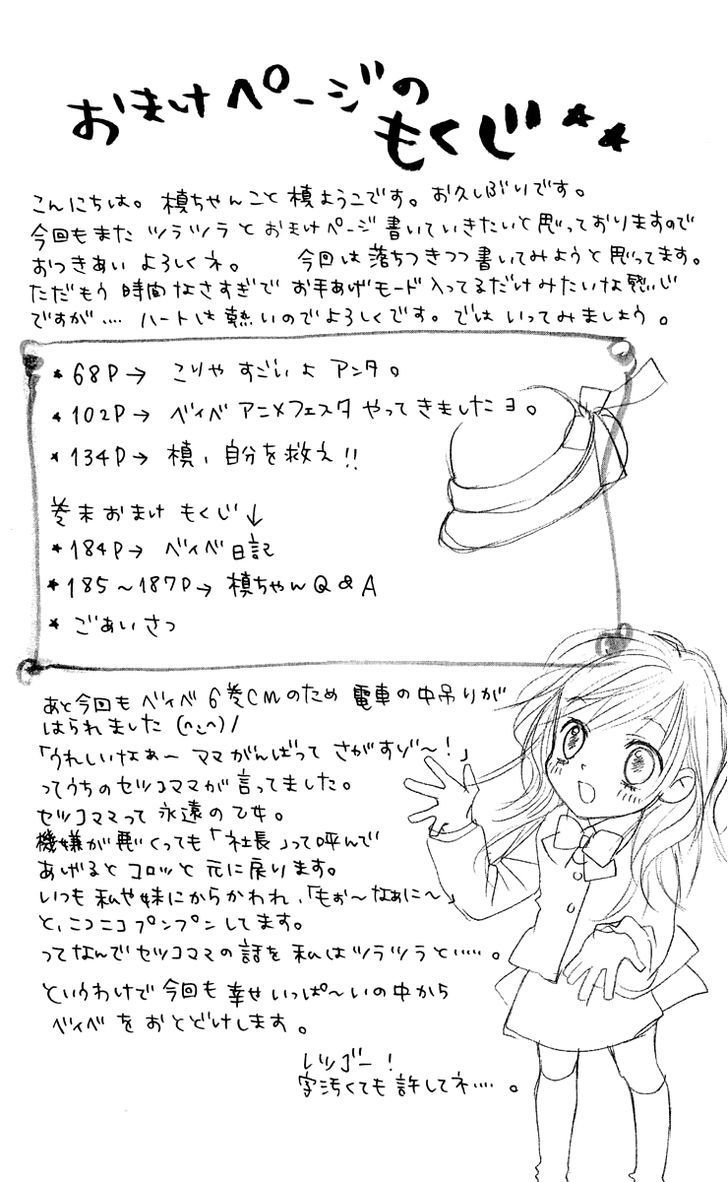 おまけページの
もくじ★★
こんにちは。槙ちゃんこと槙ようこです。お久しぶりです。
今回もまたツラツラとおまけページ書いていきたいと思っておりますので
おつきあいよろしくネ。 今回は落ちつきつつ書いてみようと思ってます。
ただもう時間なさすぎでお手あげモード入ってるだけみたいな感じ
ですが…. ハートは熱いのでよろしくです。ではいってみましょう。
★68P→ こりゃすごいよアンタ。
★102P→ ベイベアニメフェスタやってきましたヨ。
★134P→ 槙、自分を救え!!
巻末おまけもくじ↓
★184P→ ベイベ日記
★185～187P→ 槙ちゃんQ&A
★ごあいさつ
あと今回もベイベ6巻CMのため電車の中吊りが
はられました(^-^)/
「うれしいなぁ～ママがんばってさがすゾ～!」
ってうちのセツコママが言ってました。
セツコママって永遠の乙女。
機嫌が悪くっても「社長」って呼んで
あげるとコロッと元に戻ります。
いつも私や妹にからかわれ、「もぉ～なぁに～」
と、ニコニコプンプンしてます。
ってなんでセツコママの話を私はツラツラと…..。
というわけで今回も幸せいっぱ～いの中から
ベイベをおとどけします。
レツゴー!
字汚くても許してネ….。